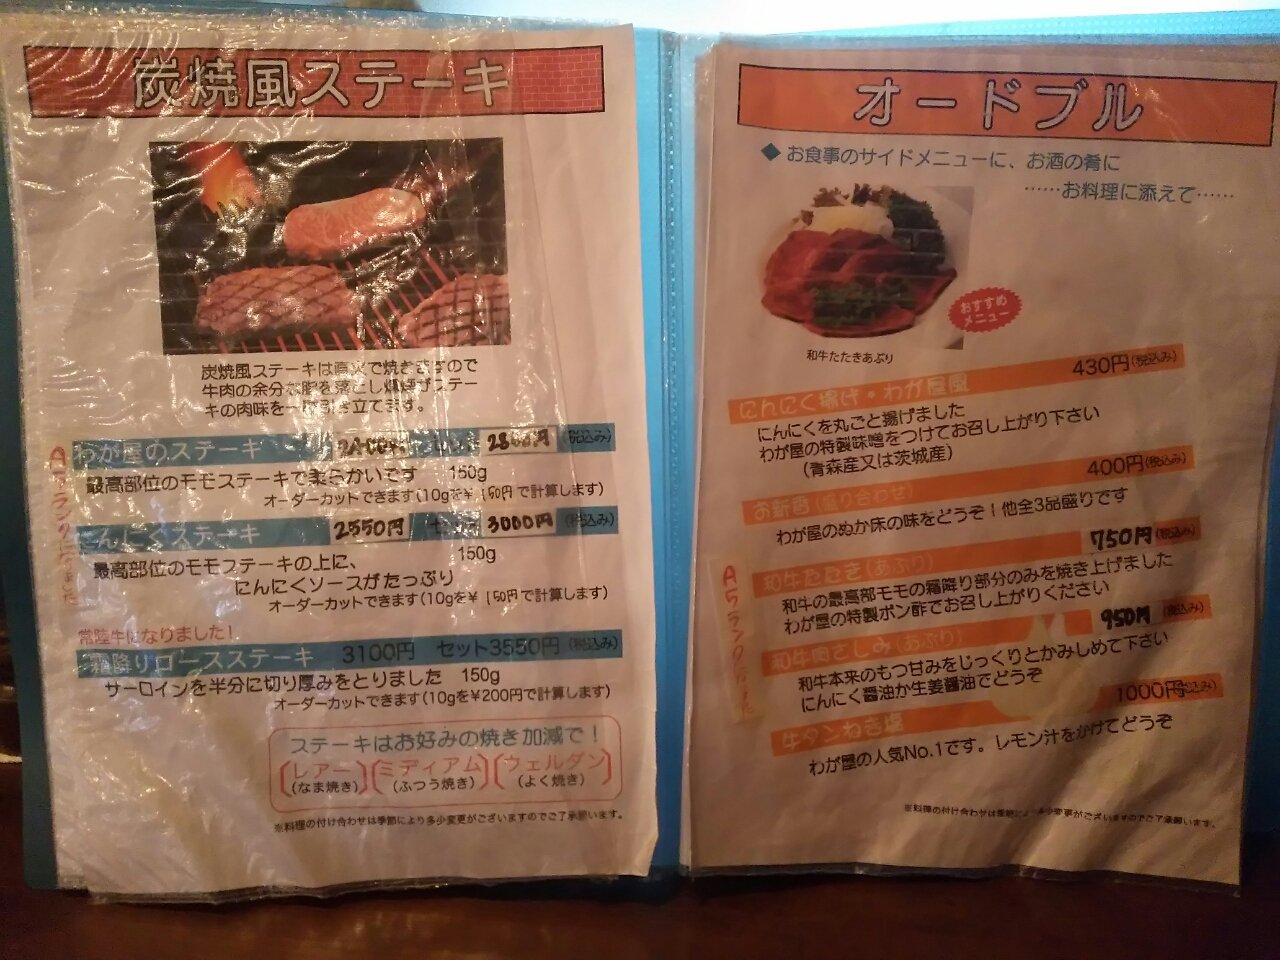 炭焼風ステーキ
炭焼風ステーキは直火で焼きますので
牛肉の余分な脂を落とし燻煙がステー
キの肉味を一層引き立てます。
わが屋のステーキ 2800円 (税込み)
最高部位のモモステーキで柔らかいです 150g
オーダーカットできます(10gを¥150円で計算します)
にんにくステーキ 2550円 セット 3000円 (税込み)
最高部位のモモステーキの上に、 150g
にんにくソースがたっぷり
オーダーカットできます(10gを¥150円で計算します)
常陸牛になりました!
霜降りロースステーキ 3100円 セット3550円(税込み)
サーロインを半分に切り厚みをとりました 150g
オーダーカットできます(10gを¥200円で計算します)
ステーキはお好みの焼き加減で!
レアー ミディアム ウェルダン
(なま焼き) (ふつう焼き) (よく焼き)
※料理の付け合わせは季節により多少変更がございますのでご了承願います。
オードブル
◆ お食事のサイドメニューに、お酒の肴に
……お料理に添えて……
おすすめ
メニュー
和牛たたきあぶり
にんにく揚げ・わが屋風 430円(税込み)
にんにくを丸ごと揚げました
わが屋の特製味噌をつけてお召し上がり下さい
(青森産又は茨城産)
お新香(盛り合わせ) 400円(税込み)
わが屋のぬか床の味をどうぞ!他全3品盛りです
A5ランクになりました
和牛たたき(あぶり) 750円(税込み)
和牛の最高部モモの霜降り部分のみを焼き上げました
わが屋の特製ポン酢でお召し上がりください
和牛肉さしみ(あぶり) 950円(税込み)
和牛本来のもつ甘みをじっくりとかみしめて下さい
にんにく醤油か生姜醤油でどうぞ
牛タンねぎ塩 1000円(税込み)
わが屋の人気No.1です。レモン汁をかけてどうぞ
※料理の付け合わせは季節により多少変更がございますのでご了承願います。